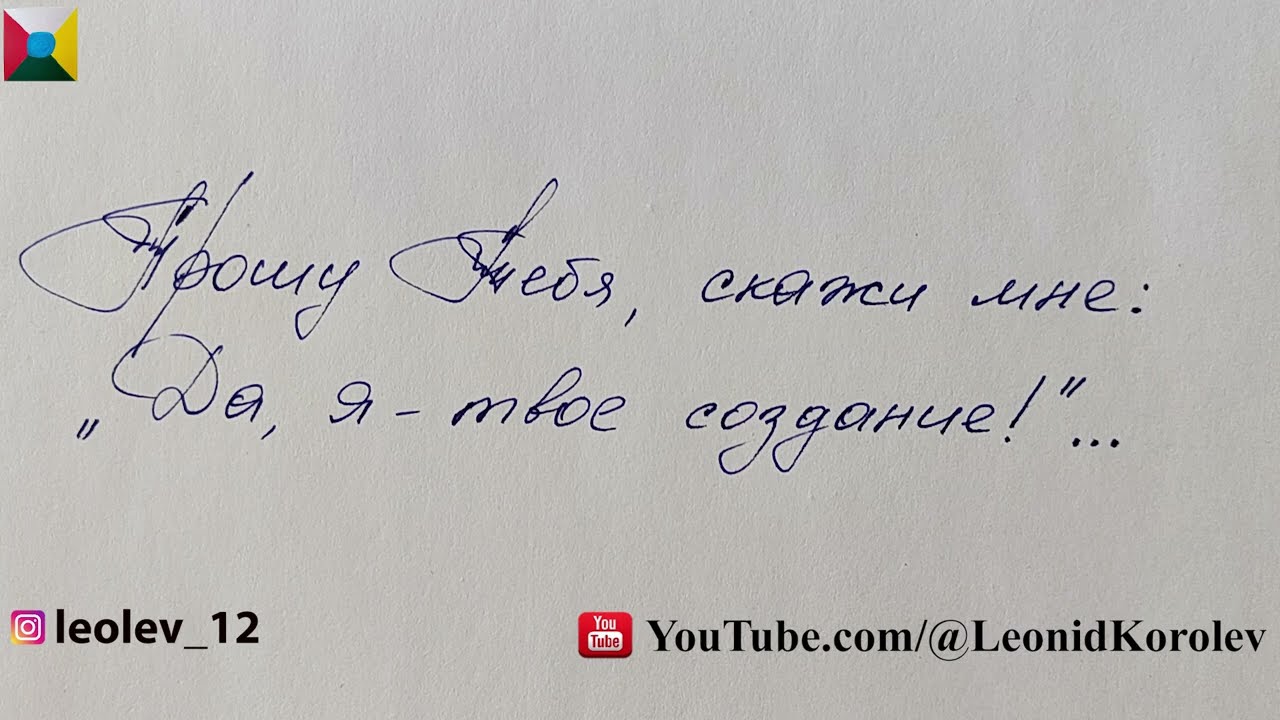 Прошу Тебя, скажи мне:
„Да, я - твое создание!"...
leolev_12
You Tube YouTube.com/@LeonidKorolev